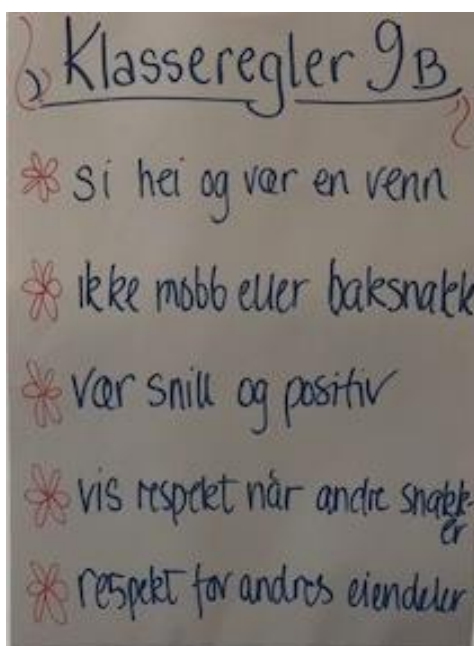 Klasseregler 9B
si hei og vær en venn
ikke mobb eller baksnakk
vær snill og positiv
vis respekt når andre snakk-
er
respekt for andres eiendeler